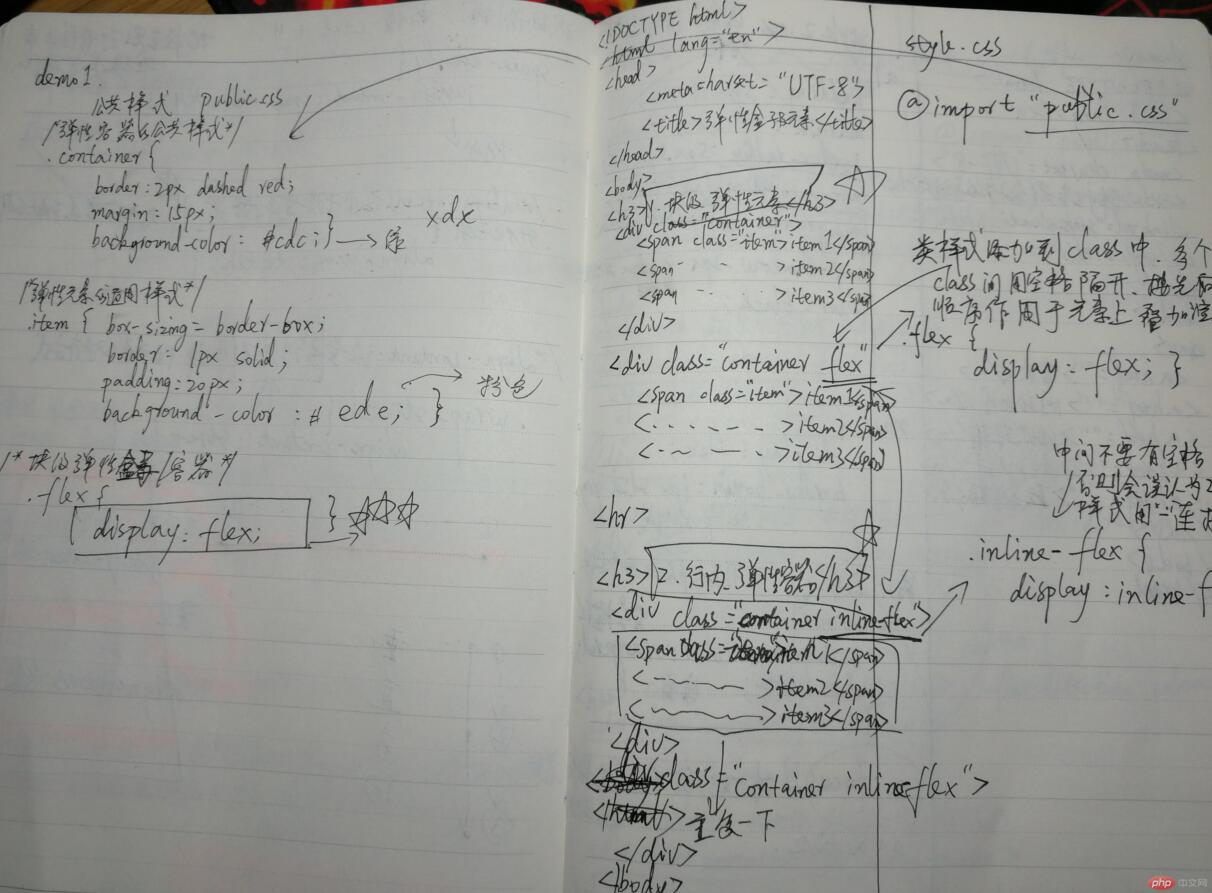 demo1.
公共样式 public.css
/*弹性容器的公共样式*/
.container{
border: 2px dashed red;
margin: 15px;
background-color: #cdc;} → 绿
xdx
/*弹性元素的通用样式*/
.item { box-sizing= border-box;
border: 1px solid;
padding: 20px;
background-color: #ede; } → 粉色
/*块级弹性容器*/
.flex {
display: flex; }
<!DOCTYPE html>
<html lang="en">
<head>
<meta charset="UTF-8">
<title>弹性盒子元素</title>
</head>
<body>
<h3>1.块级弹性元素</h3>
<div class="container">
<span class="item">item1</span>
<span >item2</span>
<span >item3</span>
</div>
<div class="container flex">
<span class="item">item1</span>
< >item2</span>
< >item3</span>
<hr>
<h3>2.行内弹性容器</h3>
<div class="container inline-flex">
<span class= item1</span>
< >item2</span>
< >item3</span>
<div>
class="container inline-flex">
重复一下
</div>
</body>
style.css
@import "public.css"
类样式添加到class中.多个
class间用空格隔开.
顺序作用于元素上
.flex {
display: flex; }
中间不要有空格
否则会误认为2
样式用"-"连
.inline-flex {
display: inline-f
php 中文网